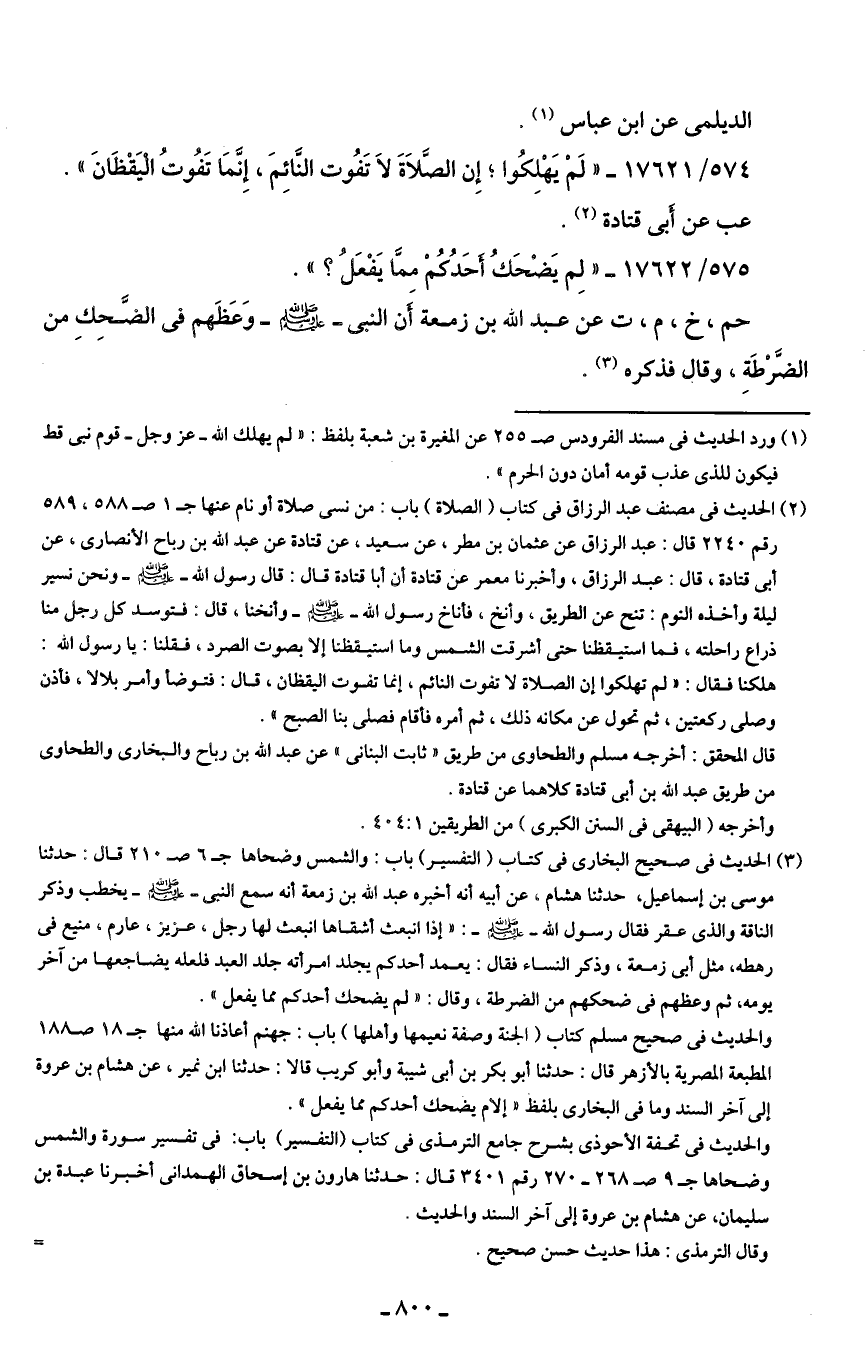 الديلمى عن ابن عباس (١) .
٥٧٤/ ١٧٦٢١ ـ « لَمْ يَهْلِكُوا ؛ إِن الصَّلاَةَ لاَ تَفُوت النَّائِمَ ، إِنَّمَا تَفُوتُ الْيَقْظَانَ » .
عب عن أَبى قتادة (٢) .
٥٧٥/ ١٧٦٢٢ ـ « لِم يَضْحَكُ أَحَدُكُمْ مِمَّا يَفْعَلُ ؟ » .
حم ، خ ، م ، ت عن عبد الله بن زمعة أَن النبى ـ ﷺ ـ وَعَظَهم فى الضَّحِكِ من
الضَّرْطَةِ ، وقال فذكره (٣) .
(١) ورد الحديث فى مسند الفرودس صـ ٢٥٥ عن المغيرة بن شعبة بلفظ : « لم يهلك الله ـ عز وجل ـ قوم نبى قط
فيكون للذى عذب قومه أمان دون الحرم » .
(٢) الحديث فى مصنف عبد الرزاق فى كتاب ( الصلاة ) باب : من نسى صلاة أو نام عنها جـ ١ صـ ٥٨٨ ، ٥٨٩
رقم ٢٢٤٠ قال : عبد الرزاق عن عثمان بن مطر ، عن سعيد ، عن قتادة عن عبد الله بن رباح الأنصارى ، عن
أبى قتادة ، قال : عبد الرزاق ، وأخبرنا معمر عن قتادة أن أبا قتادة قال : قال رسول الله ـ ﷺ ـ ونحن نسير
ليلة وأخذه النوم : تنح عن الطريق ، وأنخ ، فأناخ رسول الله ـ ﷺ ـ وأنخنا ، قال : فتوسد كل رجل منا
ذراع راحلته ، فما استيقظنا حتى أشرقت الشمس وما استيقظنا إلا بصوت الصرد ، فقلنا : يا رسول الله :
هلكنا فقال : « لم تهلكوا إن الصلاة لا تفوت النائم ، إنما تفوت اليقظان ، قال : فتوضأ وأمر بلالا ، فأذن
وصلى ركعتين ، ثم تحول عن مكانه ذلك ، ثم أمره فأقام فصلى بنا الصبح » .
قال المحقق : أخرجه مسلم والطحاوى من طريق « ثابت البنانى » عن عبد الله بن رباح والبخارى والطحاوى
من طريق عبد الله بن أبى قتادة كلاهما عن قتادة .
وأخرجه ( البيهقى فى السنن الكبرى ) من الطريقين ١ : ٤٠٤ .
(٣) الحديث فى صحيح البخارى فى كتاب ( التفسير ) باب : والشمس وضحاها جـ ٦ صـ ٢١٠ قال : حدثنا
موسى بن إسماعيل، حدثنا هشام ، عن أبيه أنه أخبره عبد الله بن زمعة أنه سمع النبى ـ ﷺ ـ يخطب وذكر
الناقة والذى عقر فقال رسول الله ـ ﷺ ـ : « إذا انبعث أشقاها انبعث لها رجل ، عزيز ، عارم ، منيع فى
رهطه، مثل أبى زمعة ، وذكر النساء فقال : يعمد أحدكم يجلد امرأته جلد العبد فلعله يضاجعها من آخر
يومه، ثم وعظهم فى ضحكهم من الضرطة ، وقال : « لم يضحك أحدكم مما يفعل » .
والحديث فى صحيح مسلم كتاب ( الجنة وصفة نعيمها وأهلها ) باب : جهنم أعاذنا الله منها جـ ١٨ صـ ١٨٨
المطبعة المصرية بالأزهر قال : حدثنا أبو بكر بن أبى شيبة وأبو كريب قالا : حدثنا ابن نمير ، عن هشام بن عروة
إلى آخر السند وما فى البخارى بلفظ « إلام يضحك أحدكم مما يفعل » .
والحديث فى تحفة الأحوذى بشرح جامع الترمذى فى كتاب (التفسير) باب: فى تفسير سورة والشمس
وضحاها جـ ٩ صـ ٢٦٨ ـ ٢٧٠ رقم ٣٤٠١ قال : حدثنا هارون بن إسحاق الهمدانى أخبرنا عبدة بن
سليمان، عن هشام بن عروة إلى آخر السند والحديث .
وقال الترمذى : هذا حديث حسن صحيح .
=
ـ ٨٠٠ ـ